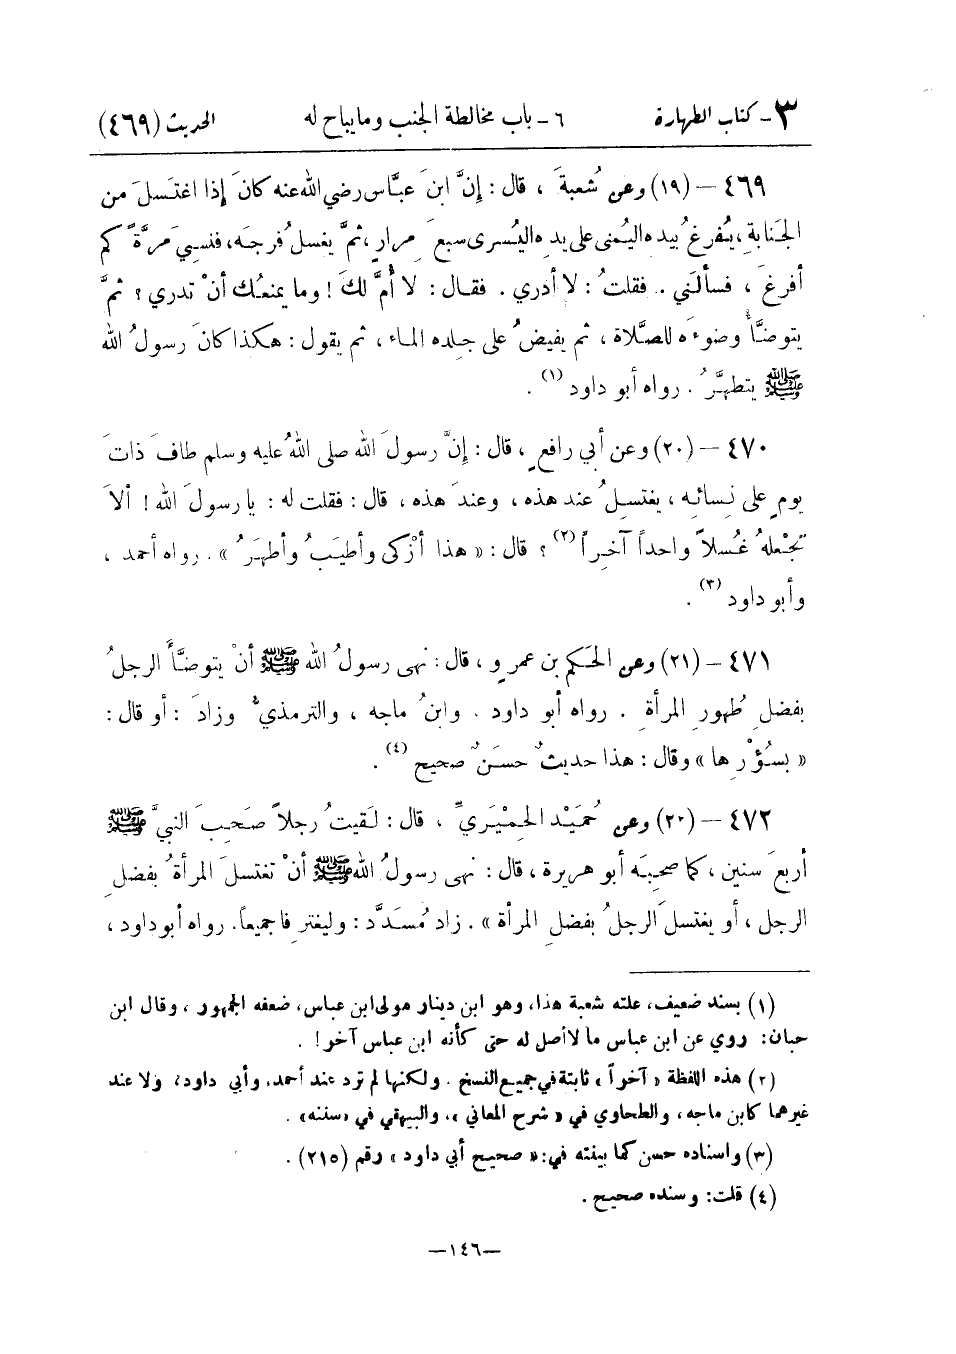 ٣ - كتاب الطهارة ٦ - باب مخالطة الجنب وما يباح له الحديث (٤٦٩)
٤٦٩ - (١٩) وعن شُعبةَ ، قال : إنَّ ابنَ عبَّاس رضي الله عنه كانَ إذا اغتَسلَ من
الجَنابةِ ، يُفرغُ بيده اليُمنى على يدِه اليُسرى سبعَ مرارٍ ، ثمَّ يغسلُ فرجَه، فنسيَ مرَّةً كم
أفرغَ ، فسألَني . فقلتُ : لا أدري . فقال : لا أُمَّ لكَ ! وما يمنعُك أنْ تدري ؟ ثمَّ
يتوضَّأُ وضوءَه للصَّلاة ، ثم يفيضُ على جلدِه الماء ، ثم يقول : هكذا كانَ رسولُ الله
ﷺ يتطهَّرُ . رواه أبو داود (١) .
٤٧٠ - (٢٠) وعن أبي رافعٍ ، قال : إنَّ رسولَ الله صلى اللهُ عليه وسلم طافَ ذاتَ
يومٍ على نِسائِه ، يغتسِلُ عند هذه ، وعندَ هذه ، قال : فقلت له : يا رسولَ الله ! ألاَ
تجْعلهُ غُسلاً واحداً آخِراً (٢) ؟ قال : « هذا أزْكى وأطيَبُ وأطهَرُ » . رواه أحمد ،
وأبو داود (٣) .
٤٧١ - (٢١) وعن الحَكم بن عمرٍو ، قال : نهى رسولُ الله ﷺ أنْ يتوضَّأَ الرجلُ
بفضلِ طُهورِ المرأةِ . رواه أبو داود . وابنُ ماجه ، والترمذيُّ وزادَ : أو قال :
« بسُؤْرِها » وقال : هذا حديثٌ حسَنٌ صحيح (٤) .
٤٧٢ - (٢٠) وعن حُمَيْد الحِمْيَريِّ ، قال : لَقيتُ رجلاً صَحِبَ النبيَّ ﷺ
أربعَ سنين ، كما صحِبَه أبو هريرة ، قال : نهى رسولُ الله ﷺ أنْ تغتسلَ المرأةُ بفضلِ
الرجل ، أو يغتسلَ الرجلُ بفضلِ المرأة » . زاد مُسَدَّد : وليغترِفا جميعاً. رواه أبو داود ،
(١) بسند ضعيف، علته شعبة هذا، وهو ابن دينار مولى ابن عباس، ضعفه الجمهور ، وقال ابن
حبان: روي عن ابن عباس ما لا أصل له حتى كأنه ابن عباس آخر! .
(٢) هذه اللفظة « آخراً » ثابتة في جميع النسخ . ولكنها لم ترد عند أحمد، وأبي داود، ولا عند
غيرهما كابن ماجه، والطحاوي في « شرح المعاني »، والبيهقي في «سننه» .
(٣) واسناده حسن كما بينته في: « صحيح أبي داود » رقم (٢١٥) .
(٤) قلت: وسنده صحيح .
—١٤٦—